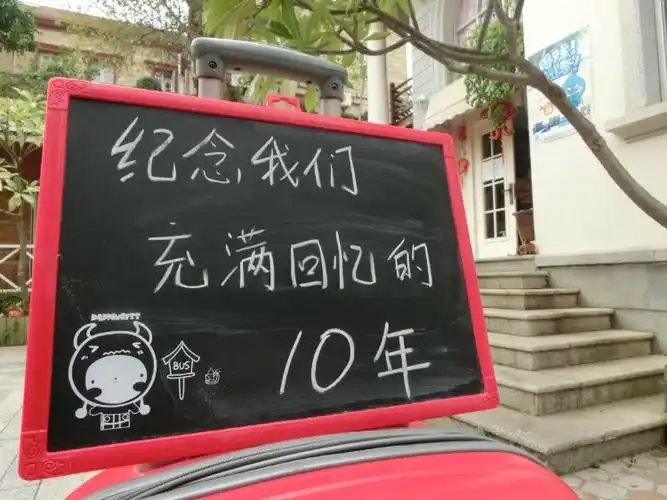 纪念我们
充满回忆的
10年
BUS